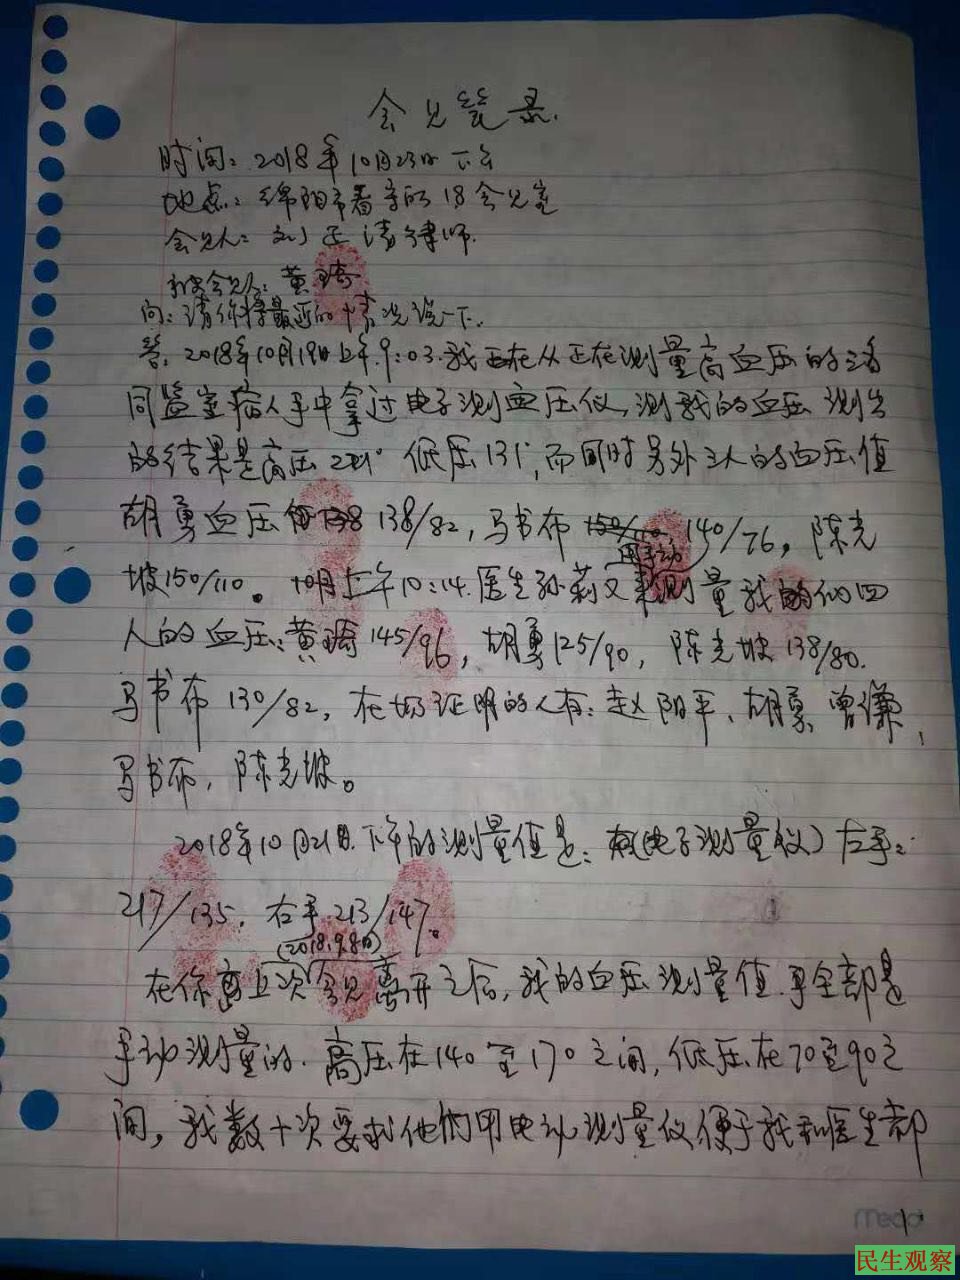 会见笔录
时间：2018年10月23日下午
地点：绵阳市看守所18会见室
会见人：刘正清律师.
被会见人：黄琦
问：请你将最近的情况说一下.
答：2018年10月19日上午9:03.我正在从正在测量高血压的三名
同监室病人手中拿过电子测血压仪，测我的血压 测出
的结果是高压221° 低压131°,而同时另外三人的血压值
胡勇血压 138/82，马书布 140/76，陈克
用手动
坡150/110。 上午10:14.医生孙莉又来测量我们四
人的血压：黄琦145/96，胡勇125/90，陈克坡138/80.
马书布130/82，在场证明的人有：赵阳平、胡勇、曾谦，
马书布，陈克坡。
2018年10月21日.下午的测量值是：(电子测量仪）左手：
217/135，右手213/147。
(2018.9.8日)
在你上次会见离开之后，我的血压测量值.全部是
手动测量的.高压在140至170之间，低压在70至90之
间，我数十次要求他们用电动测量仪便于我和医生都
Mead
1
民生观察